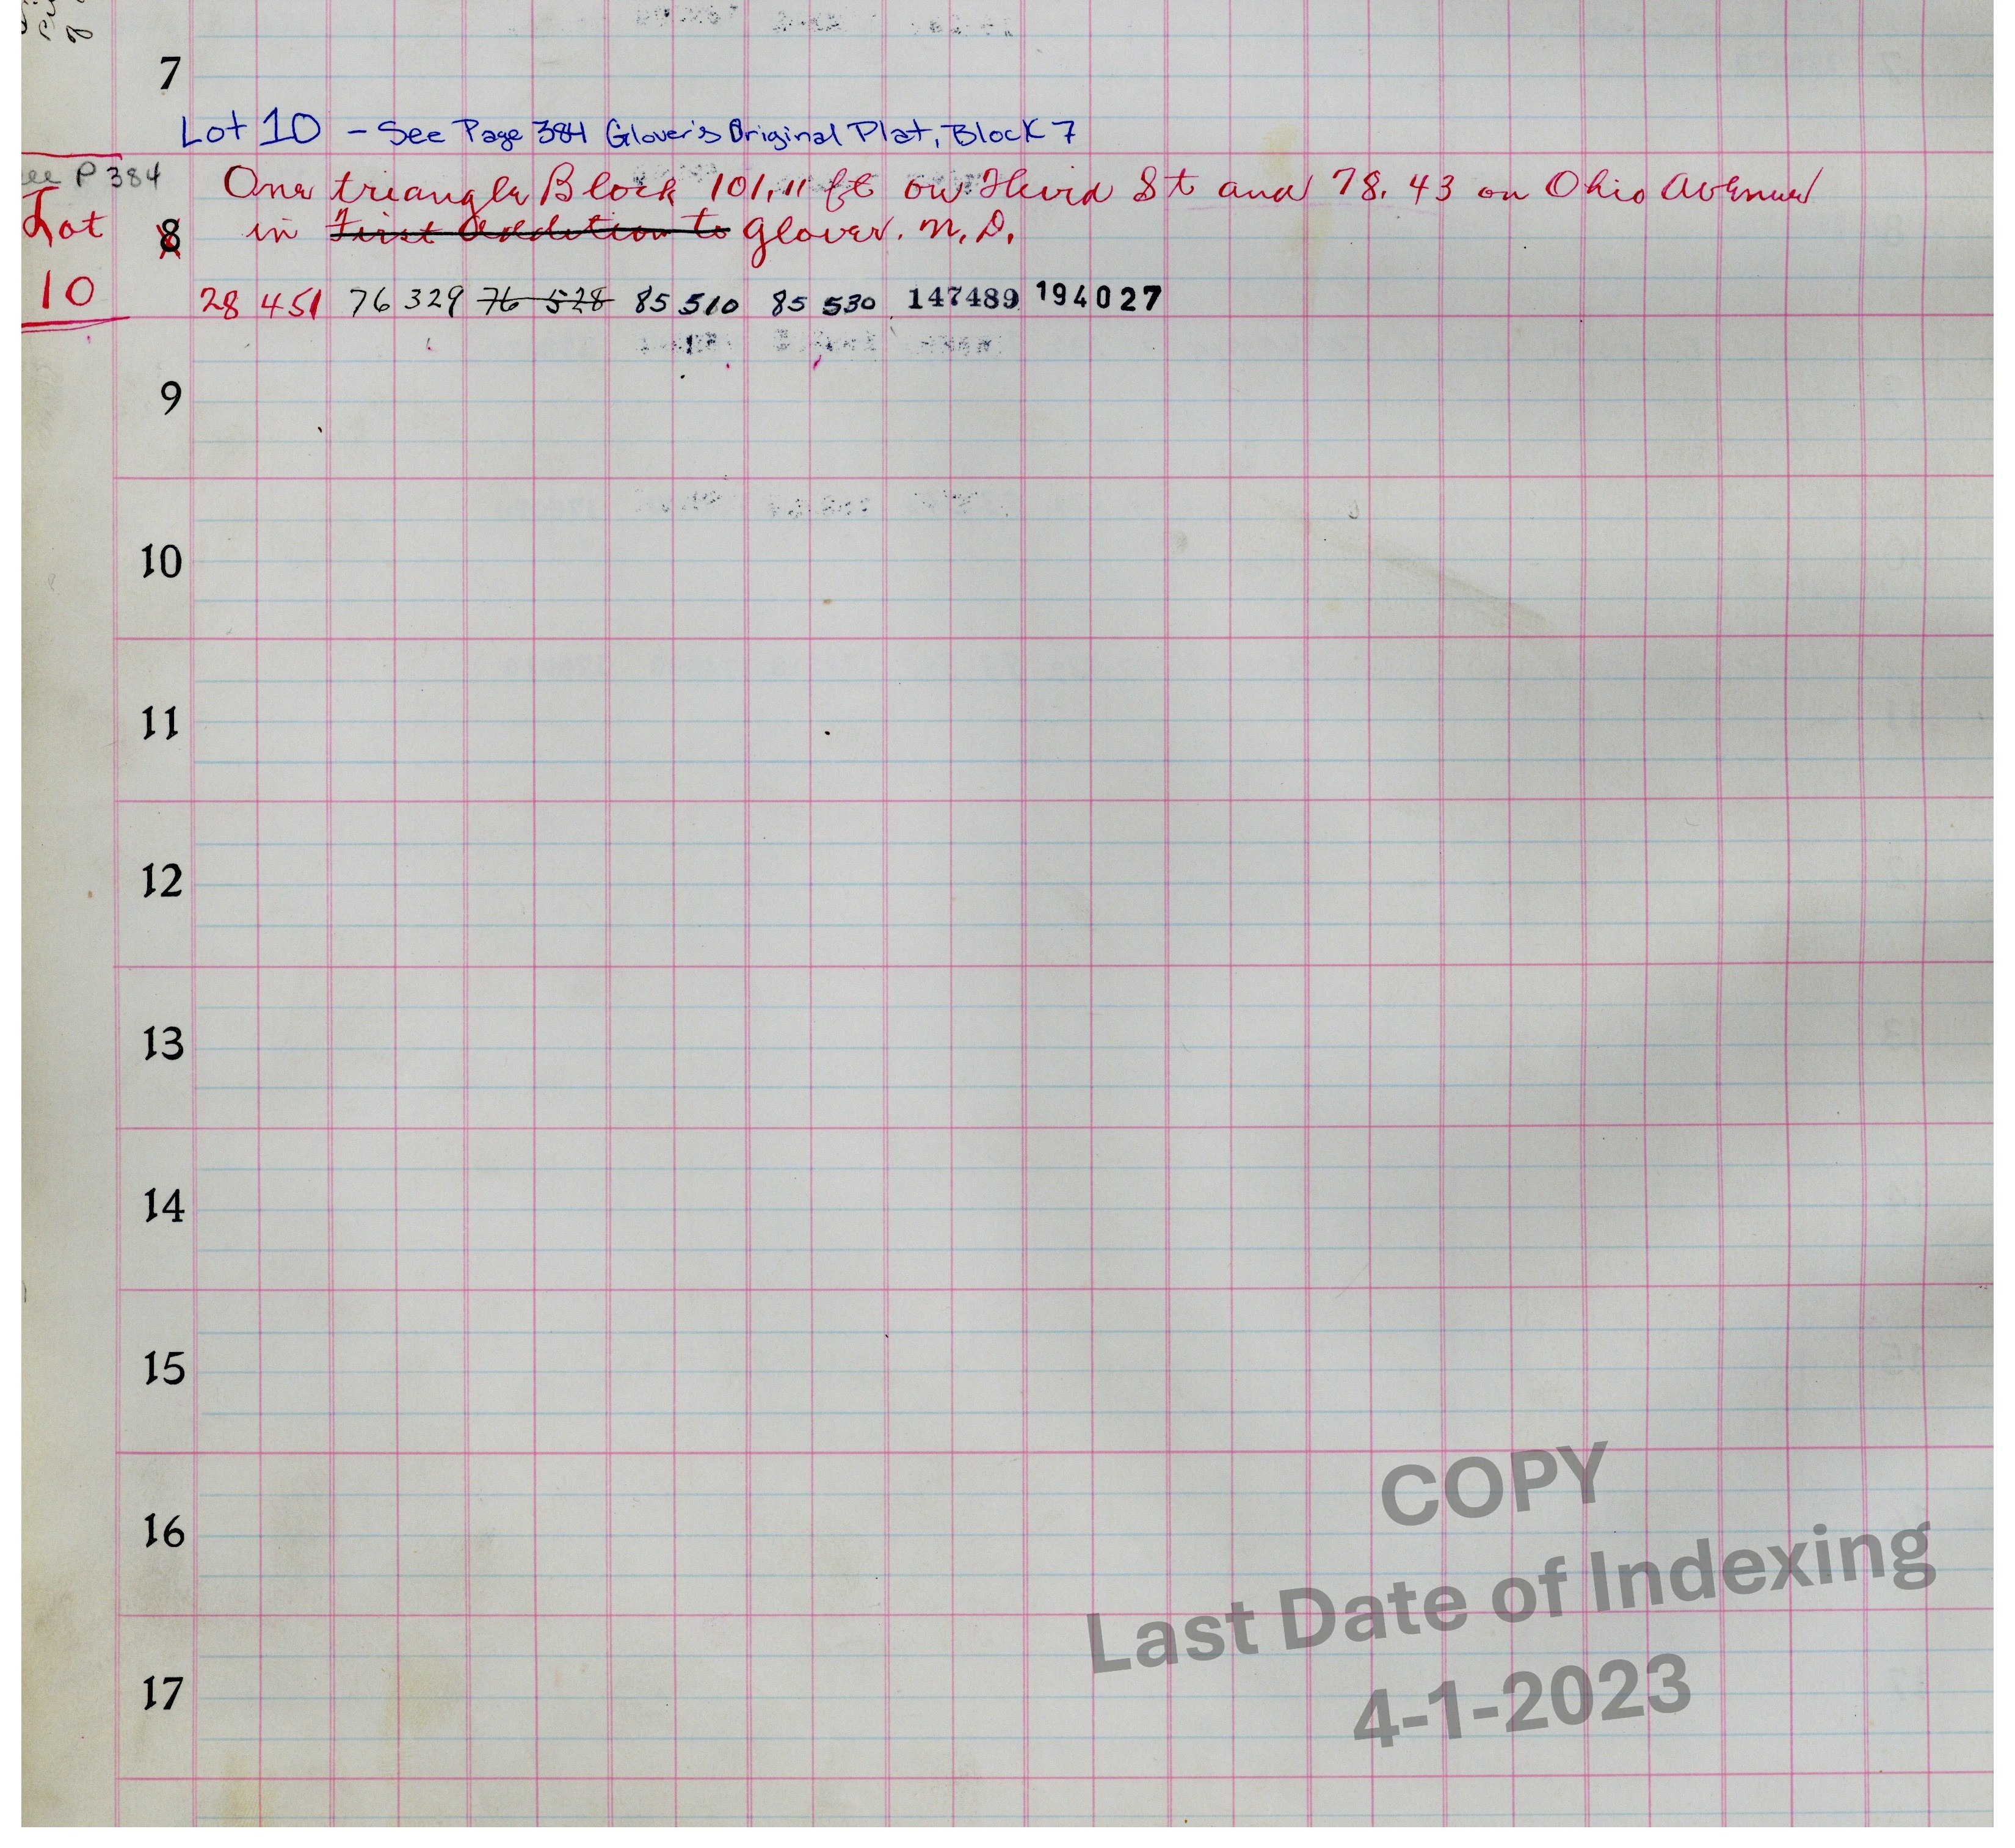 7
Lot 10 - See Page 384 Glover's Original Plat, Block 7
P 384
One triangle Block 101,11 ft on Third St and 78.43 on Ohio Avenue
Lot 8 in First Addition to Glover. N.D.
10 28 451 76 329 76 528 85 510 85 530 147489 194027
9
10
11
12
13
14
15
16
17
COPY
Last Date of Indexing
4-1-2023